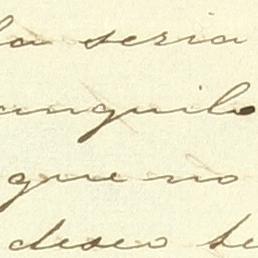 la seria
anquilo
que no
deseo se